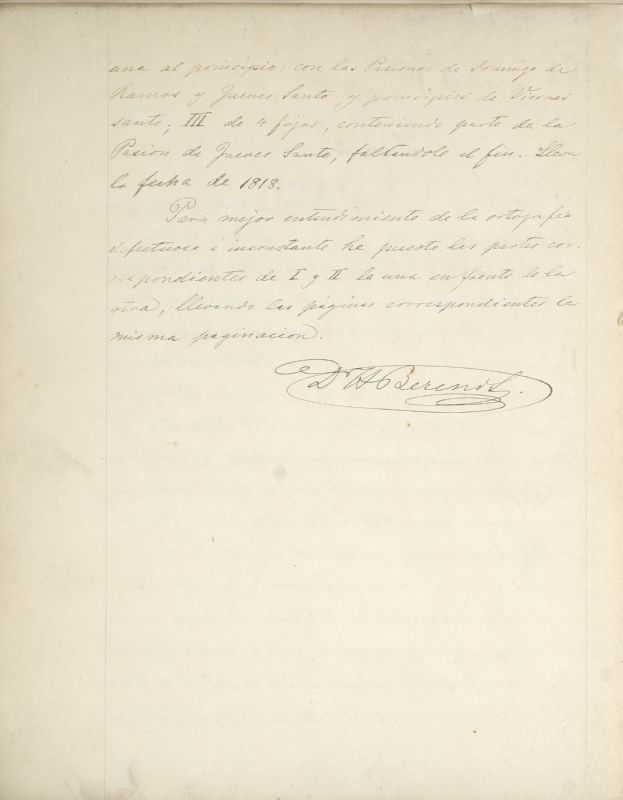 una al principio, con las Pasiones de Domingo de
Ramos y Jueves Santo y principios de Viernes
santo; III de 4 fojas, conteniendo parte de la
Pasion de Jueves Santo, faltandole el fin. Lleva
la fecha de 1818.
Para mejor entendimiento de la ortografia
defectuosa é inconstante he puesto las partes cor-
respondientes de I y II la una en frente de la
otra, llevando las páginas correspondientes la
misma paginacion.
Dr H Berendt.